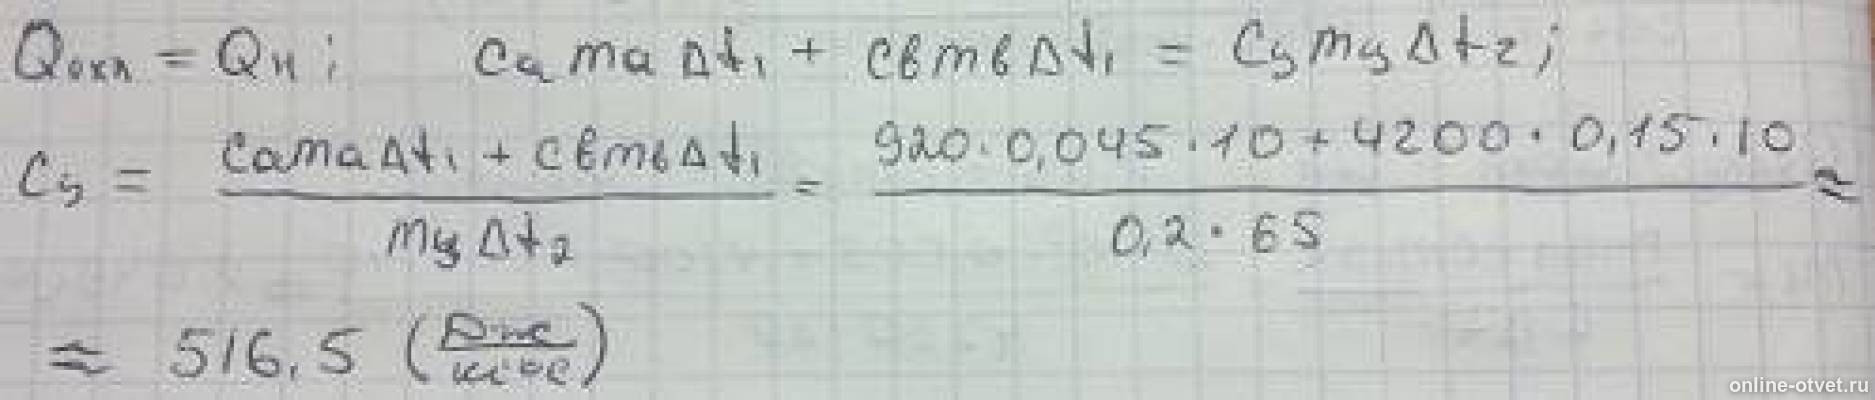 Qохл = Qн; cа mа Δt₁ + cв mв Δt₁ = cц mц Δt₂;
cц = (cа mа Δt₁ + cв mв Δt₁) / (mц Δt₂) = (920 · 0,045 · 10 + 4200 · 0,15 · 10) / (0,2 · 65) ≈
≈ 516,5 (Дж/кг°С)
online-otvet.ru